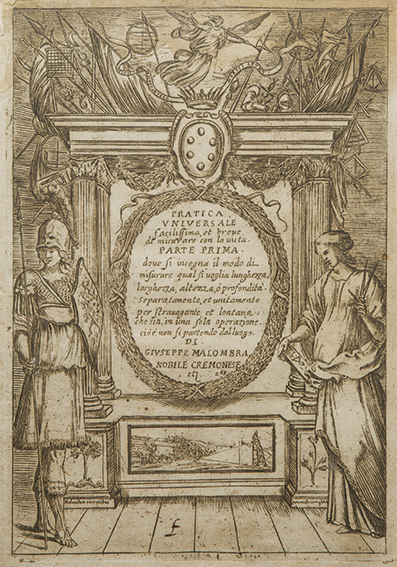 PRATICA
VNIVERSALE
facilissima, et breue,
di misurare con la uista
PARTE PRIMA.
doue si insegna il modo di
misurare qual si uoglia lunghezza,
larghezza, altezza, ò profondità
separatamente, et unitamente
per strauagante et lontana
che sia, in una sola operazione.
cioè non si partendo dal luogo.
DI
GIVSEPPE MALOMBRA
NOBILE CREMONESE